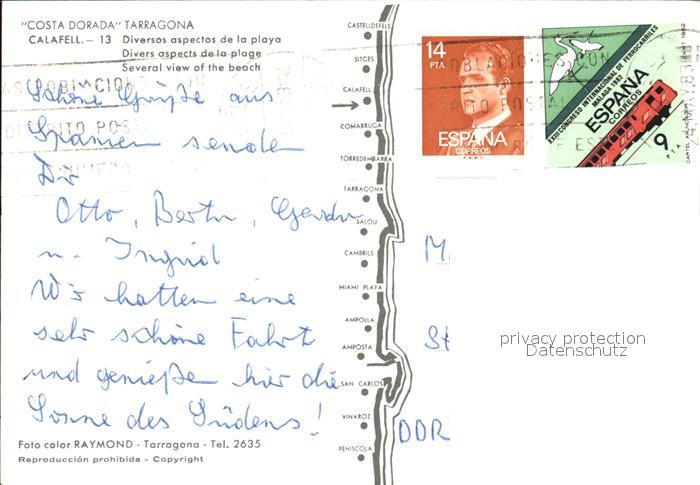 "COSTA DORADA" TARRAGONA
CALAFELL. – 13 Diversos aspectos de la playa
Divers aspects de la plage
Several view of the beach
Schöne Grüße aus
Spanien senden
Dir
Otto, Berta, Gerda
u. Ingrid
Wir hatten eine
sehr schöne Fahrt
und genießen hier die
Sonne des Südens!
Foto color RAYMOND - Tarragona - Tel. 2635
Reproducción prohibida - Copyright
CASTELLDEFELS
SITGES
CALAFELL
COMARRUGA
TORREDEMBARRA
TARRAGONA
SALOU
CAMBRILS
MIAMI PLAYA
AMPOLLA
AMPOSTA
SAN CARLOS
VINAROZ
PEÑISCOLA
14
PTA
ESPAÑA
CORREOS
F.N.M.T.
XXIII CONGRESO INTERNACIONAL DE FERROCARRILES
MALAGA 1982
ESPAÑA
CORREOS
9
PTA
M.
St
DDR
privacy protection
Datenschutz